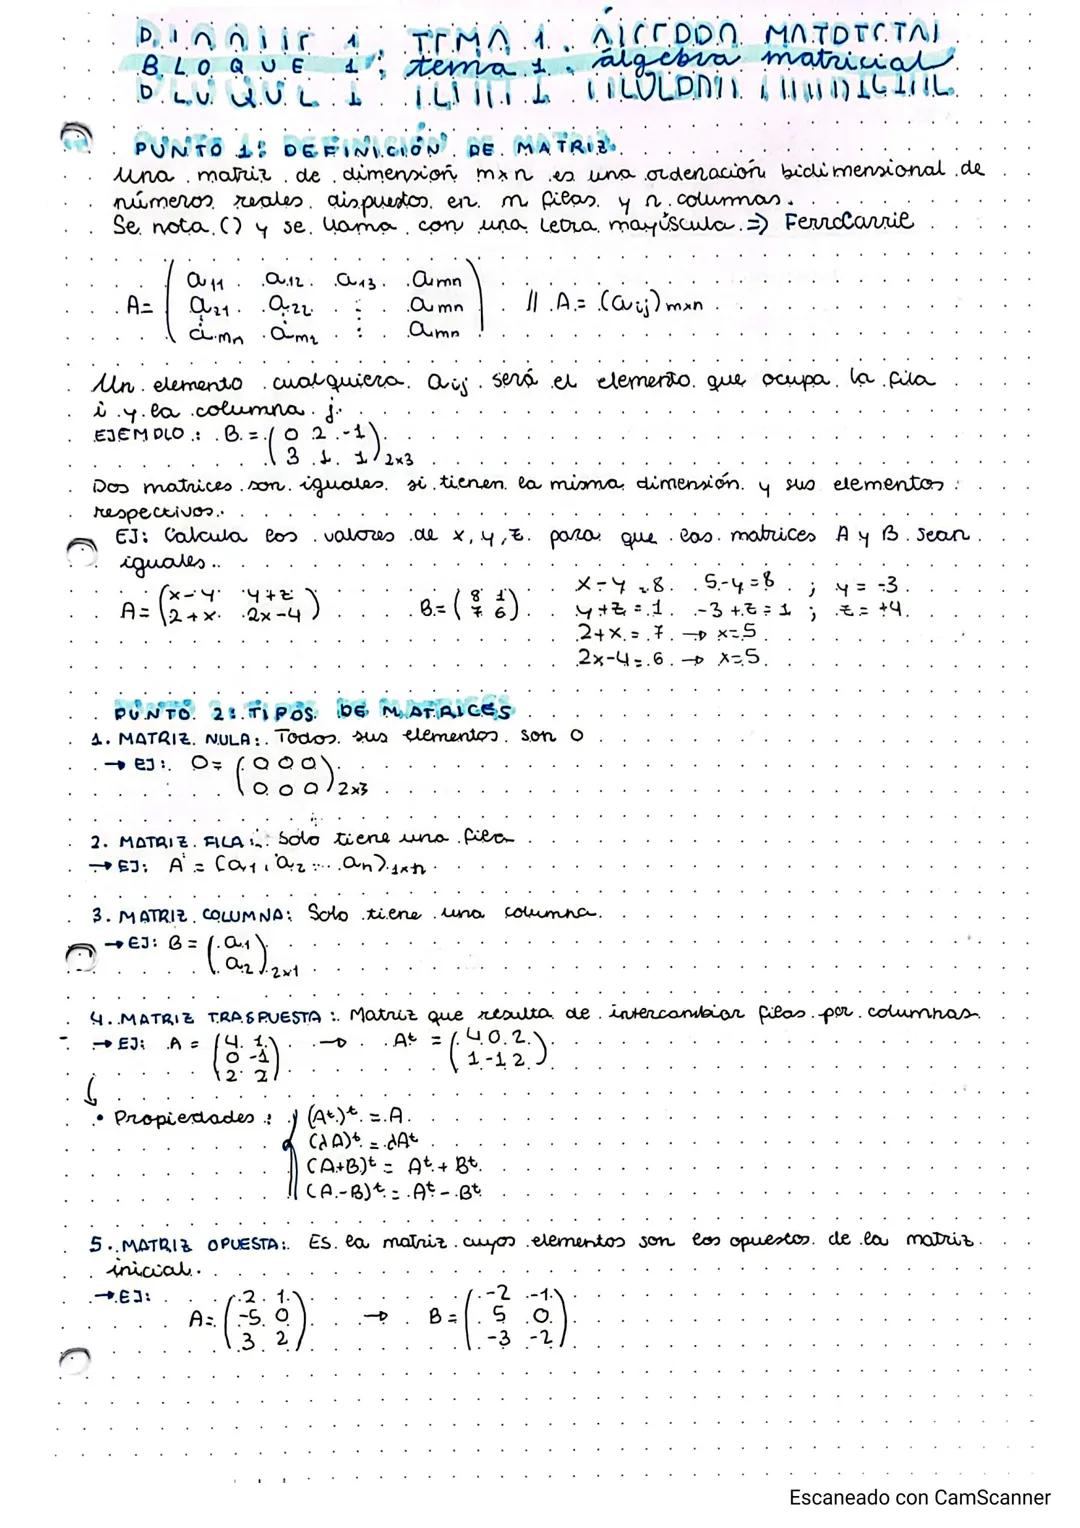 BLOQUE 1: tema 1. álgebra matricial
PUNTO 1: DEFINICIÓN DE MATRIZ.
Una matriz de dimensión mxn es una ordenación bidimensional de
números reales dispuestos en m filas y n columnas.
Se nota () y se llama con una letra mayúscula. => Ferrocarril
a11 a12 a13 amn
A= a21 a22 : amn // A = (aij) mxn
amn am2 : amn
Un elemento cualquiera aij será el elemento que ocupa la fila
i y la columna j.
EJEMPLO: B = (0 2 -1
3 1 1) 2x3
Dos matrices son iguales si tienen la misma dimensión y sus elementos
respectivos.
EJ: Calcula los valores de x, y, z para que las matrices A y B sean
iguales..
A = (x-y y+z
2+x 2x-4)
B = (8 1
7 6)
x-y=8 5-y=8 ; y = -3
y+z=1 -3+z=1 ; z=+4
2+x=7 → x=5
2x-4=6 → x=5
PUNTO 2: TIPOS DE MATRICES
1. MATRIZ NULA: Todos sus elementos son 0
→ EJ: O = (0 0 0
0 0 0) 2x3
2. MATRIZ FILA: Solo tiene una fila
→ EJ: A = (a1, a2 ... an) 1xn
3. MATRIZ COLUMNA: Solo tiene una columna.
→ EJ: B = (a1
a2) 2x1
4. MATRIZ TRASPUESTA: Matriz que resulta de intercambiar filas por columnas
→ EJ: A = (4 1
0 -1
2 2) → At = (4 0 2
1 -1 2)
• Propiedades: (At)t = A
(λA)t = λAt
(A+B)t = At + Bt
(A-B)t = At - Bt
5. MATRIZ OPUESTA: Es la matriz cuyos elementos son los opuestos de la matriz
inicial.
→ EJ:
A = (2 1
-5 0
3 2) → B = (-2 -1
5 0
-3 -2)
Escaneado con CamScanner